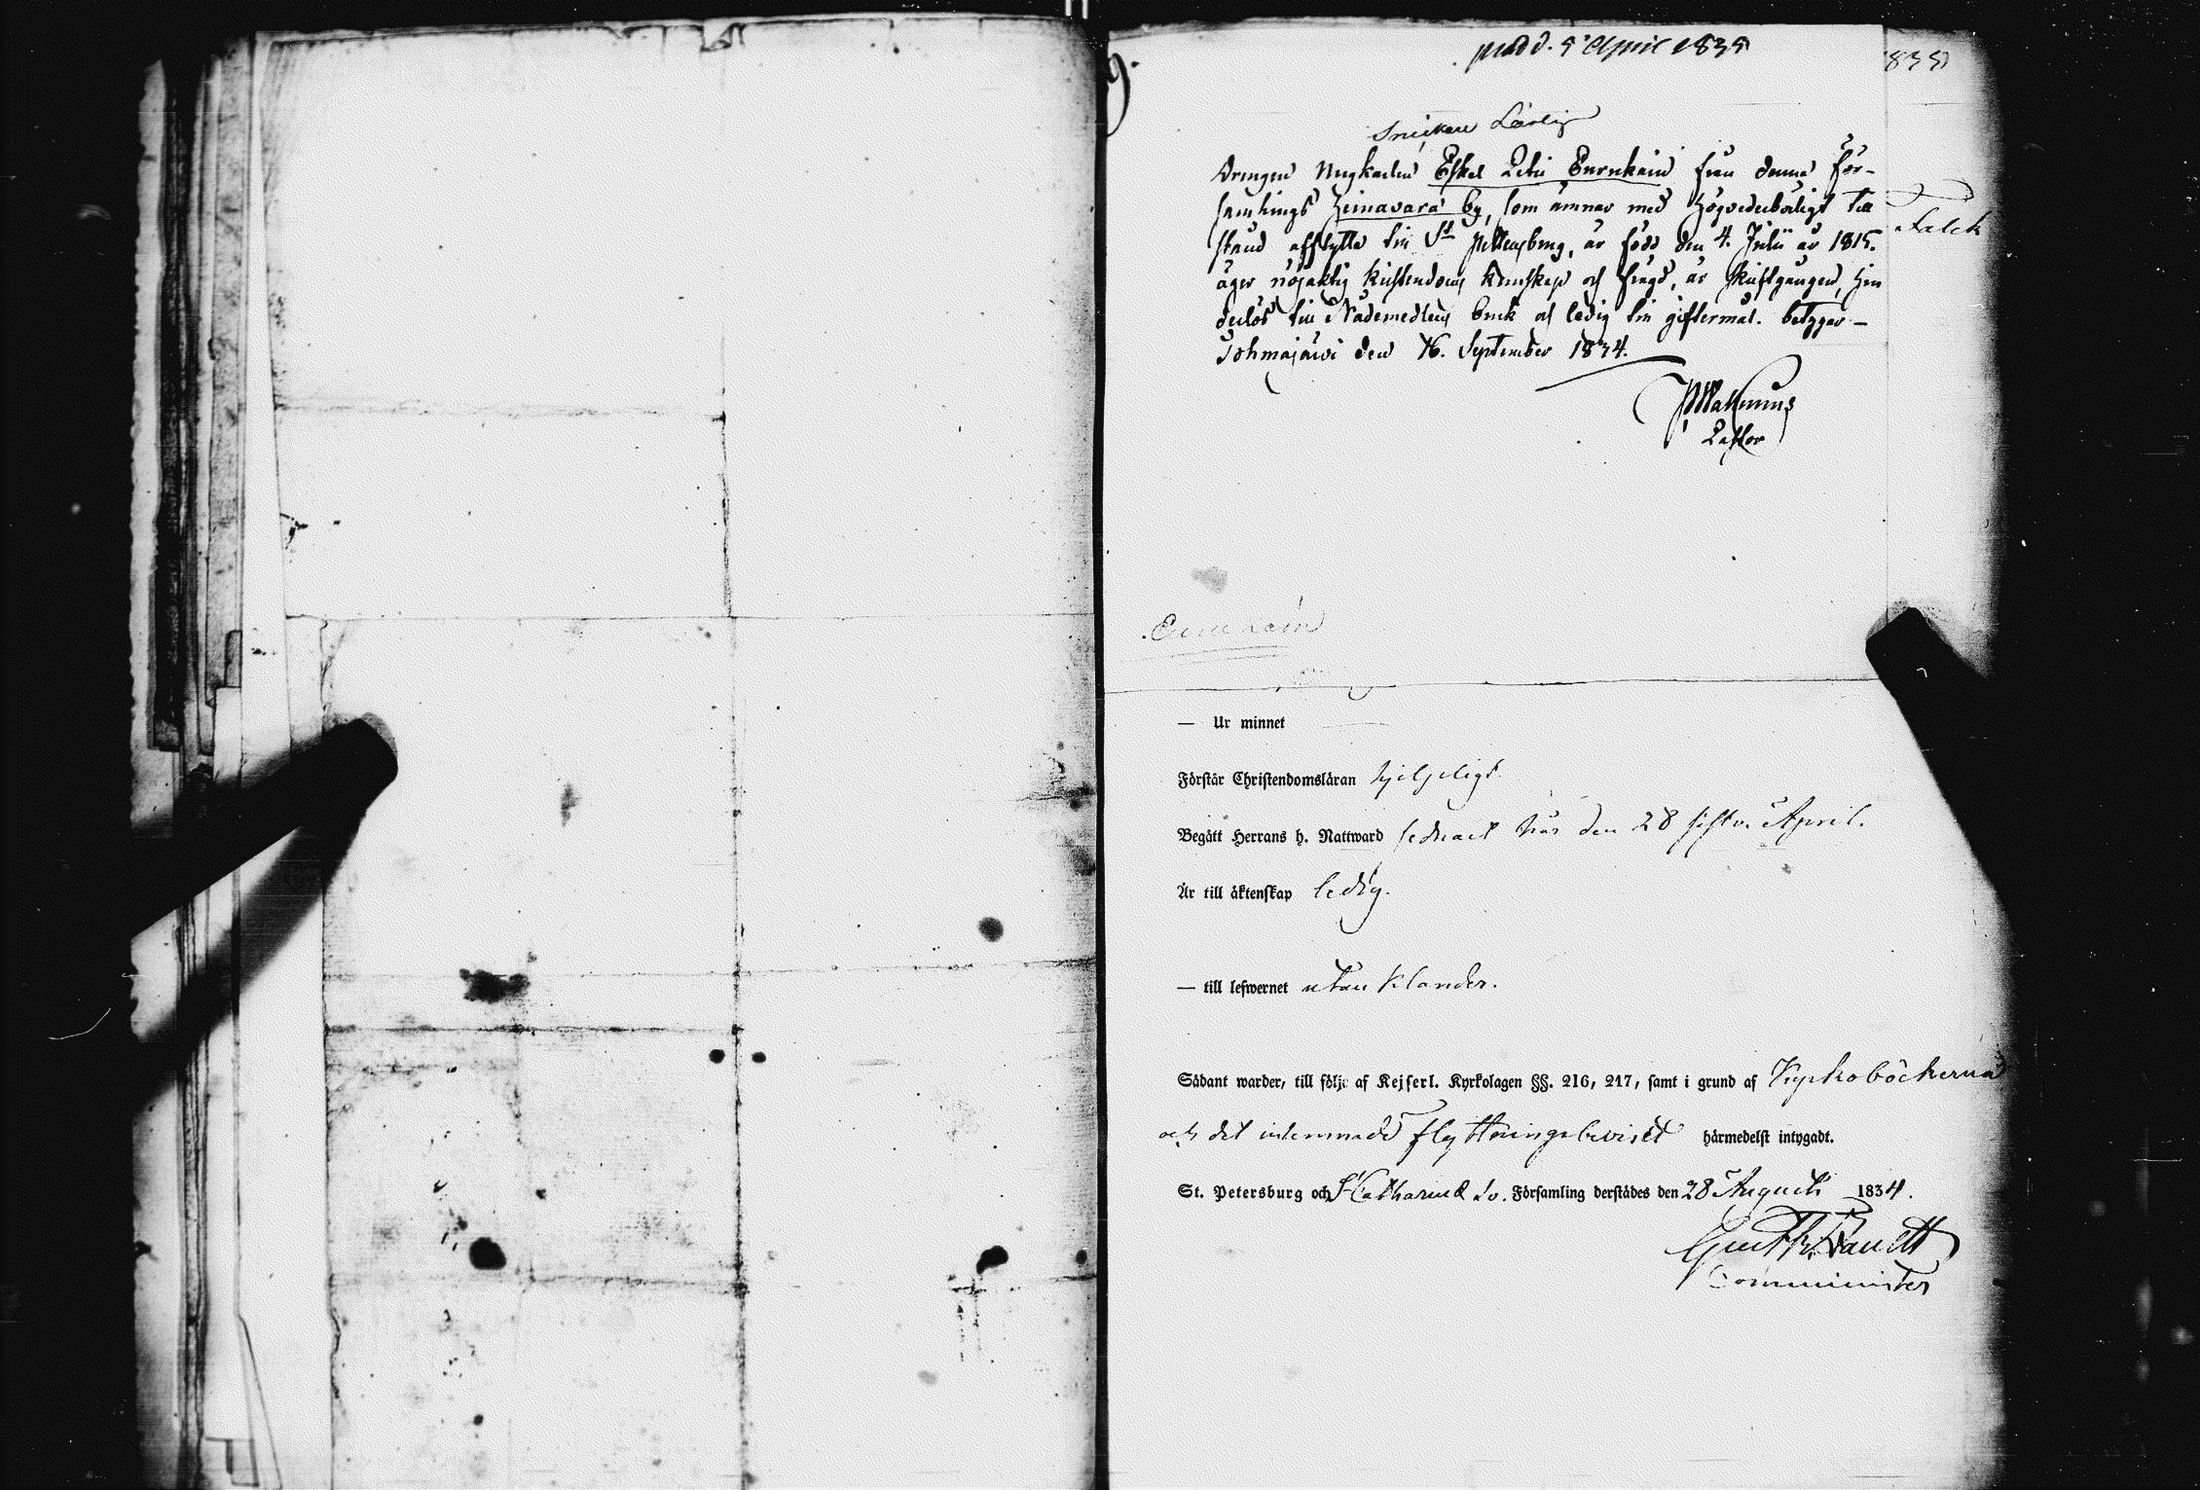 prod d. 5 April 1835
1835
Snickare Lärling
Drengen Ungkarlen Eskel Eskelsson Eurenkain från denna För-
samlings Heinavara by, som ämnar med högvederbörligt till
stånd afflytta till St Pettersburg, är född den 4. Julii år 1815.
äger nöjaktig kristendoms kunskap och frägd, är skriftgången, hin
derlös till Nådemedlens bruk och ledig till giftermål. betygar —
Tohmajärvi den 16. September 1834.
Pastor
Falck
— Ur minnet
Förstår Christendomsläran hjelpeligt.
Begått Herrans h. Nattward sednast här den 28 sistl. April.
Är till äktenskap ledig.
— till lefwernet utan klander.
Sådant warder, till följe af Kejserl. Kyrkolagen §§. 216, 217, samt i grund af Kyrkoböckerna
och det inlemnade flyttningsbeviset härmedelst intygadt.
St. Petersburg och St Catharina Sv. Församling derstädes den 28 Augusti 1834.
Comminister